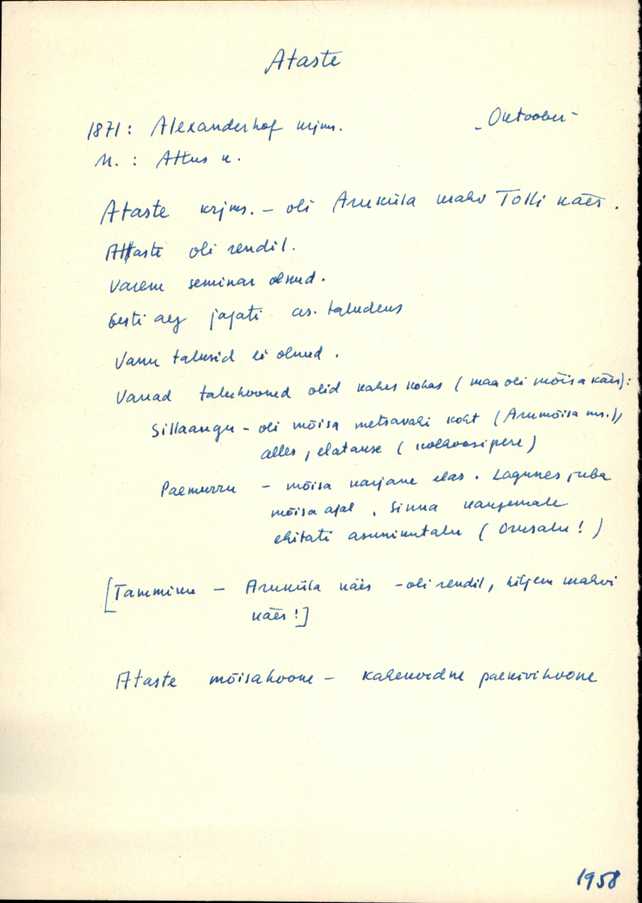 Ataste
1871: Alexanderhof krjms. "Oktoober"
M. : Attus k.
Ataste krjms. – oli Aruküla mahv Tolli käes.
Ataste oli rendil.
Varem seminar olnud.
Eesti aeg jagati as. taludeks
Vanu talusid ei olnud.
Vanad taluhooned olid kahes kohas (maa oli mõisa käes):
Sillaangu – oli mõisa metsavahi koht (Arumõisa ms.),
alles, elatakse (kolhoosipere)
Paemurru – mõisa karjane elas. Lagunes juba
mõisa ajal. Sinna kaugemale
ehitati asunikutalu (Orusalu!)
[Tammiku – Aruküla käes – oli rendil, hiljem mahvi
käes!]
Ataste mõisahoone – kahekordne paekivihoone
1958